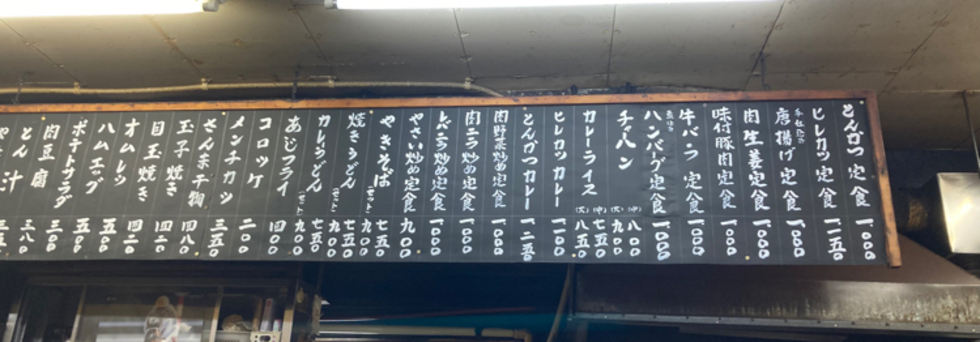 とんかつ定食 一、〇〇〇
ヒレカツ定食 一、一五〇
手仕込み 唐揚げ定食 一、〇〇〇
肉生姜定食 一、〇〇〇
味付豚肉定食 一、〇〇〇
牛バラ定食 一、〇〇〇
ハンバーグ定食 一、〇〇〇
チャハン (中) 八〇〇 (大)
カレーライス (中) 七五〇 (大) 八五〇
ヒレカツカレー
とんかつカレー
肉野菜炒め定食 一、〇〇〇
肉ニラ炒め定食 一、〇〇〇
レバニラ炒め定食 一、〇〇〇
やさい炒め定食 九〇〇
やきそば 七五〇
(セット) 九〇〇
焼きうどん 七五〇
(セット) 九〇〇
カレーうどん 七五〇
(セット) 九〇〇
あじフライ 四〇〇
コロッケ 一〇〇
メンチカツ 二〇〇
さんま干物 三五〇
玉子焼き 四八〇
目玉焼き 四二〇
オムレツ 四二〇
ハムエッグ 五〇〇
ポテトサラダ 五〇〇
肉豆腐 三〇〇
とん汁 三八〇